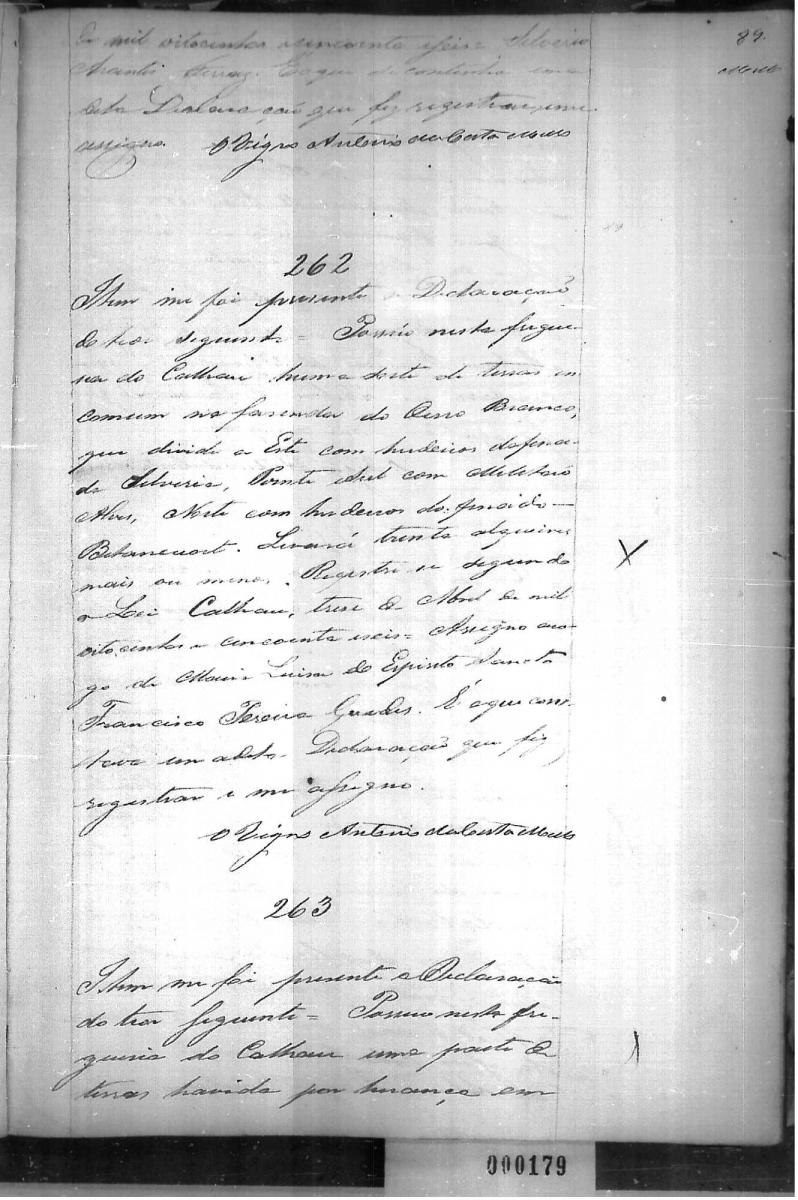 89.
de mil oitocentos e cincoenta e seis = Silverio
Arantes Ferraz. E o que se continha em a
dita Declaração que fiz registrar, e me
assigno. O Vigro Antonio da Costa
262
Item me foi presente a Declaração
do teor seguinte = Possúo nesta fregue-
sia do Calhau huma sorte de terras em
comum na fazenda do Barro Branco,
que divide a Este com herdeiros da fina-
da Silveria, Poente e Sul com
Alves, Norte com herdeiros do finado
Betancourt. Levará trenta alqueires
mais ou menos. Registre-se segundo
a Lei Calhau, trese de Abril de mil
oitocentos e cincoenta e seis = Assigno a ro-
go de Maria Luisa do Espirito Sancto
Francisco Pereira Guedes. E o que cons-
tava em a dita Declaração que fiz
registrar e me assigno.
O Vigro Antonio da Costa
263
Item me foi presente a Declaração
do teor seguinte = Possuo nesta fre-
guesia do Calhau uma parte de
terras havida por herança em
000179